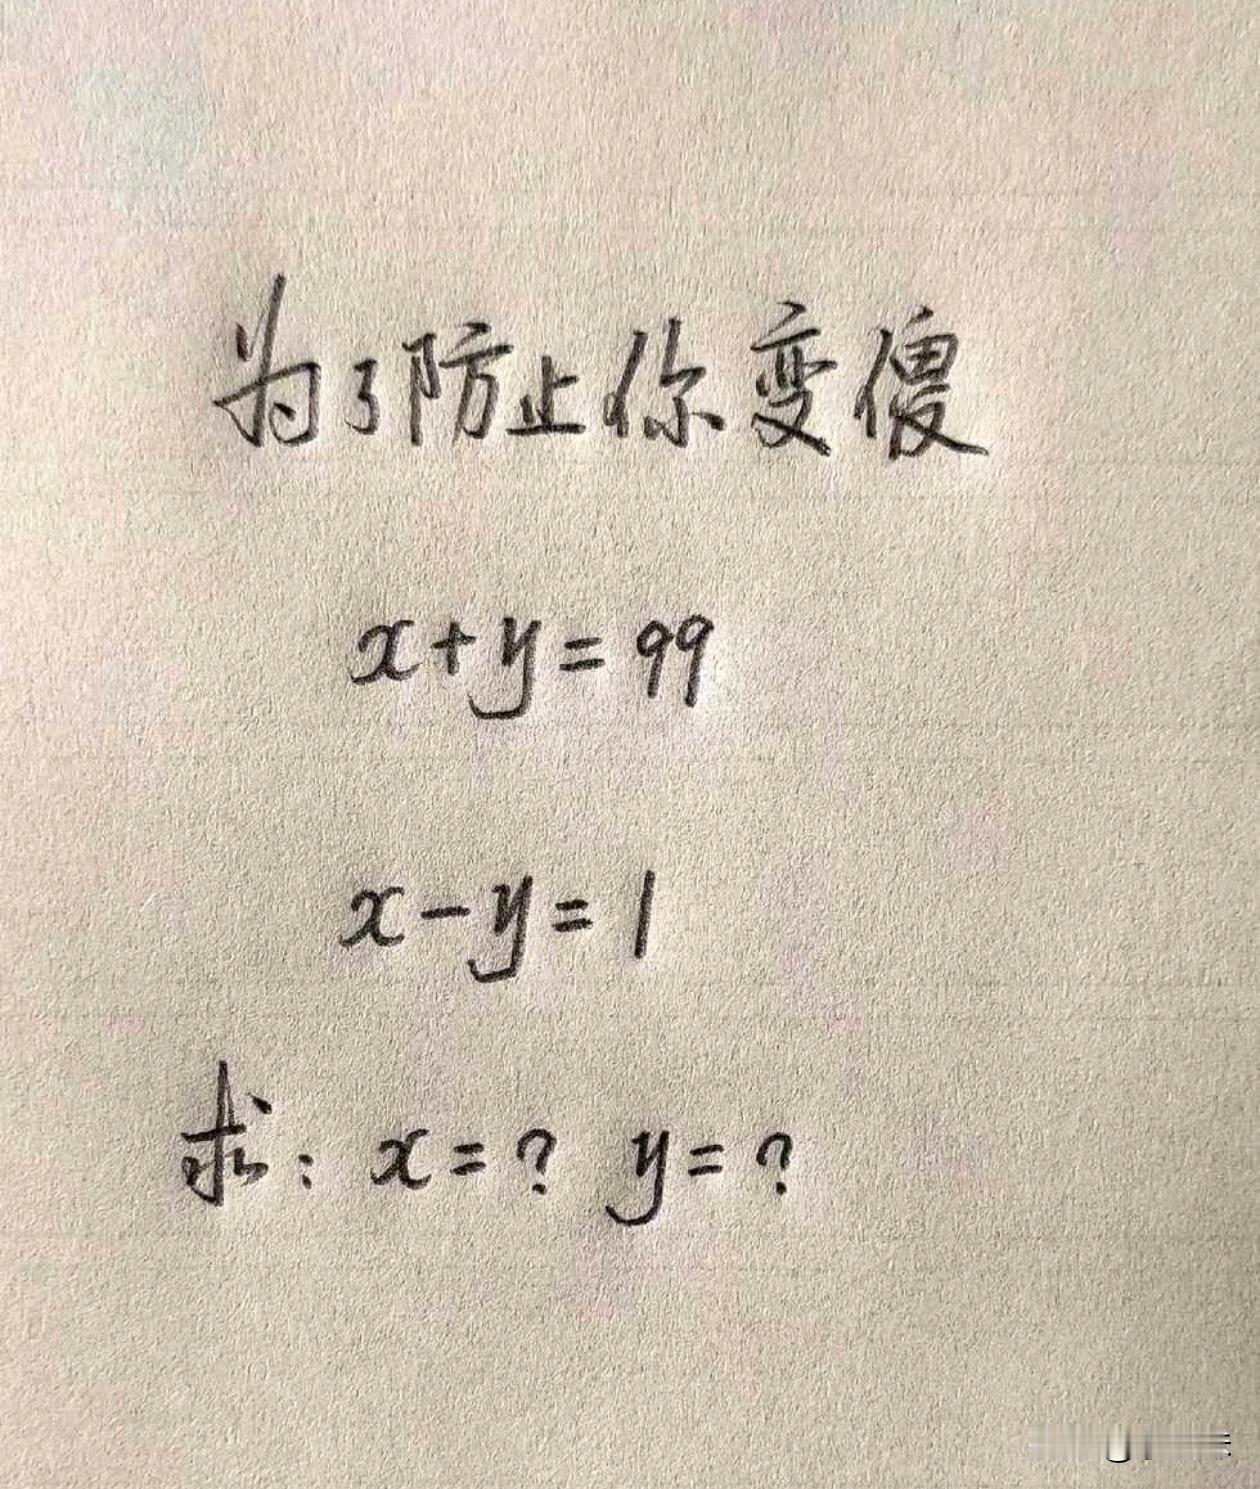 为了防止你变傻
x+y=99
x-y=1
求：x=? y=?